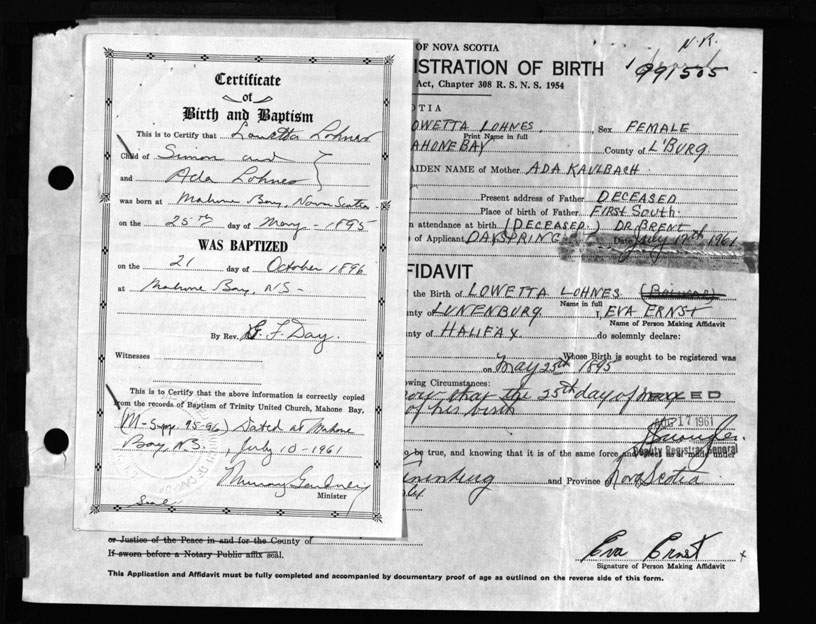 Certificate
of
Birth and Baptism
This is to Certify that Lowetta Lohnes
Child of Simon and
and Ada Lohnes
was born at Mahone Bay, Nova Scotia
on the 25th day of May - 1895
WAS BAPTIZED
on the 21 day of October 1896
at Mahone Bay, N.S-
By Rev. F. Day.
Witnesses
This is to Certify that the above information is correctly copied
from the records of Baptism of Trinity United Church, Mahone Bay,
(M-Supp. 95-96) Dated at Mahone
Bay, N.S., July 10-1961
Murray
Minister
Seal
OF NOVA SCOTIA
N.R.
ISTRATION OF BIRTH
991505
Act, Chapter 308 R. S. N. S. 1954
OTIA
OWETTA LOHNES. Sex FEMALE
Print Name in full
AHONE BAY County of L'BURG
AIDEN NAME of Mother ADA KAULBACH
Present address of Father DECEASED
Place of birth of Father FIRST SOUTH
n attendance at birth (DECEASED) DR. BRENT
s of Applicant DAYSPRING Date July 12th 1961
FIDAVIT
the Birth of LOWETTA LOHNES
Name in full
nty of LUNENBURG I, EVA ERNST
Name of Person Making Affidavit
nty of HALIFAX do solemnly declare:
Whose Birth is sought to be registered was
on May 25th 1895
owing Circumstances:
now that the 25th day of
of his birth
17 1961
Deputy Registrar General
o be true, and knowing that it is of the same force and
under
nenburg and Province of Nova Scotia
61.
or Justice of the Peace in and for the County of
If sworn before a Notary Public affix seal.
Eva Ernst x
Signature of Person Making Affidavit
This Application and Affidavit must be fully completed and accompanied by documentary proof of age as outlined on the reverse side of this form.